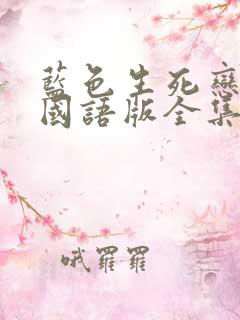 藍色生死戀
國語版全集
哦羅羅